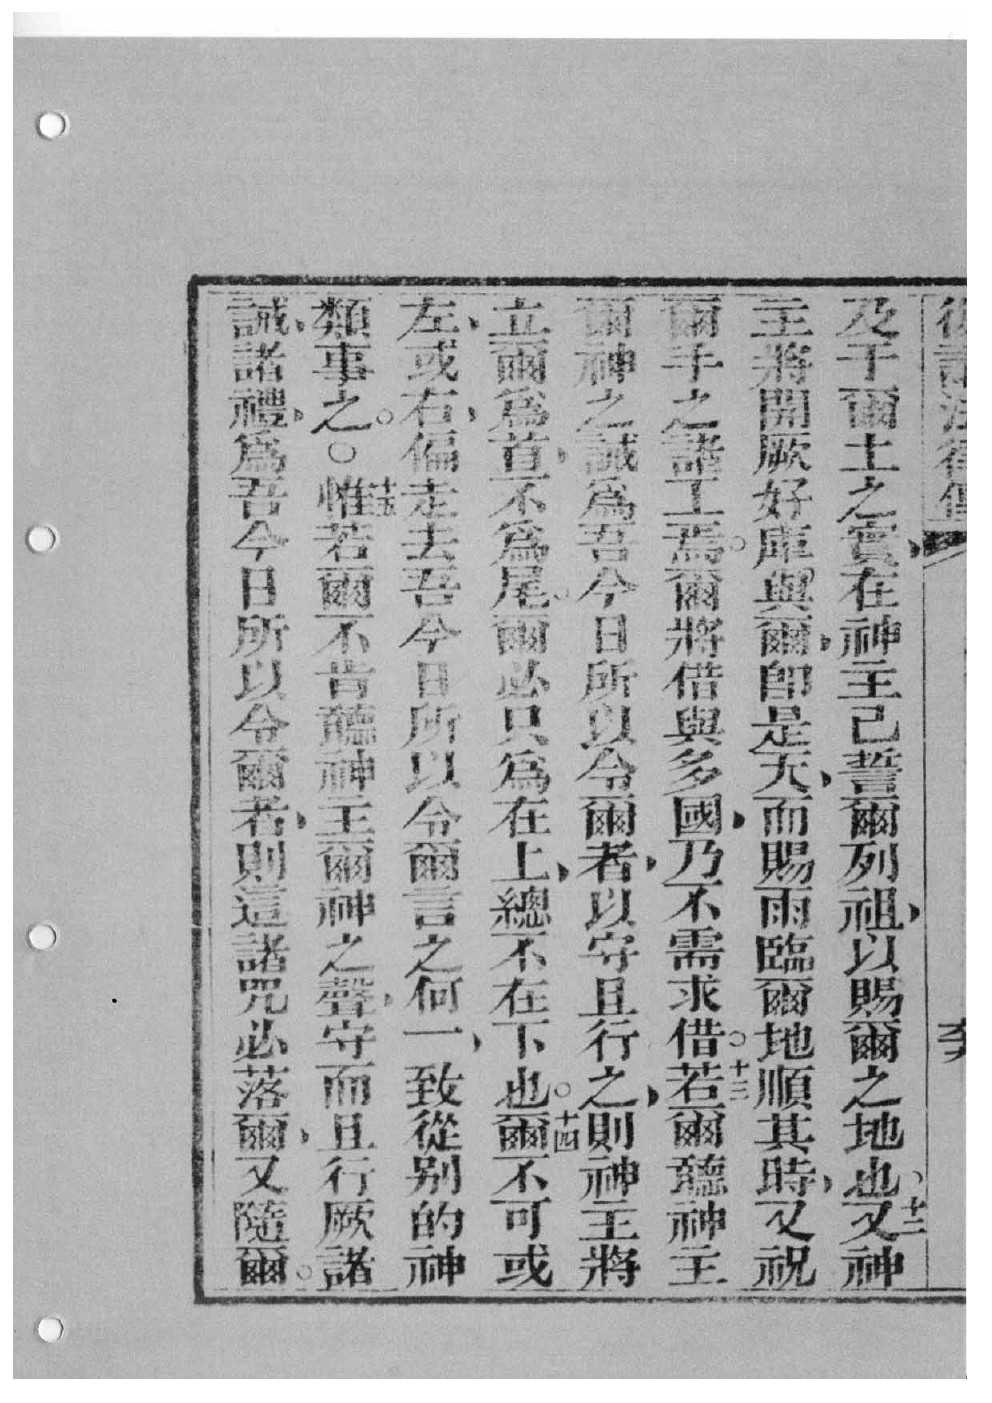 復講法律傳
及于爾土之實、在神主己誓爾列祖、以賜爾之地也。十二又神
主將開厥好庫與爾、即是天、而賜雨臨爾地順其時、又祝
爾手之諸工焉。爾將借與多國、乃不需求借。十三若爾聽神主
爾神之誡為吾今日所以令爾者、以守且行之、則神主將
立爾為首、不為尾。爾必只為在上、總不在下也。十四爾不可或
左、或右、偏走去吾今日所以令爾言之何一、致從别的神
類事之。○十五惟若爾不肯聽神主爾神之聲、守而且行厥諸
誡、諸禮、為吾今日所以令爾者、則這諸咒必落爾、又隨爾。